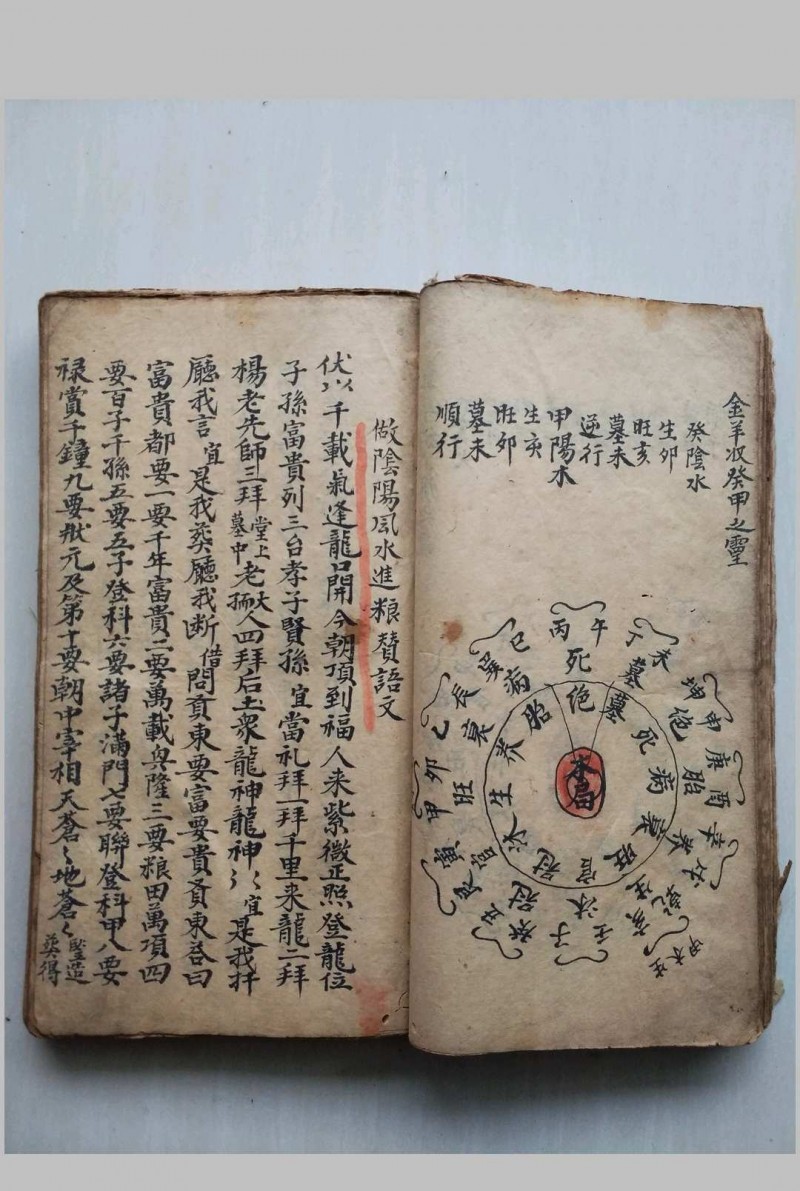 金羊収癸甲之靈
癸陰水
生卯
旺亥
墓未
逆行
甲陽木
生亥
旺卯
墓未
順行
木局
絕 墓 死 病 衰 旺 官 冠 沐 生 养 胎
丙午 死
丁未 墓
坤申 绝
庚酉 胎
辛戌 养
乾亥 生
壬子 沐
癸丑 冠
艮寅 官
甲卯 旺
乙辰 衰
巽巳 病
做陰陽風水進粮賛語文
伏以千載氣逢龍口開今朝頂到福人来紫微正照登龍位
子孫富貴列三台孝子賢孫宜當礼拜一拜千里来龍二拜
楊老先師三拜堂上墓中老大孺人四拜后土眾龍神龍神〻〻宜是我扦
廳我言宜是我葵廳我断借問賁東要富要貴賁東荅曰
富貴都要一要千年富貴二要萬載興隆三要粮田萬項四
要百子千孫五要五子登科六要諸子滿門七要聯登科甲八要
禄賞千鐘九要狀元及第十要朝中宰相天蒼〻地蒼〻竪造葵得